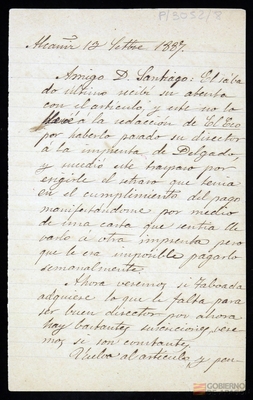 P/3052/8
Alcañiz 12 Setbre 1887.
Amigo D. Santiago: El sába
do último recibí su abierta
con el artículo, y este no lo
llevé á la redacion de El Eco
por haberlo pasado su director
á la imprenta de Delgado,
y sucedió este traspaso por
exigirle el retraso que tenia
en el cumplimiento del pago
manifestándome por medio
de una carta que sentia lle
varlo á otra imprenta pero
que le era imposible pagarlo
semanalmente.
Ahora veremos si Taboada
adquiere lo que le falta para
ser buen director por ahora
hay bastantes suscriciones, vere
mos si son constantes.
Vuelvo al artículo, y pon-
GOBIERNO
DE ARAGON